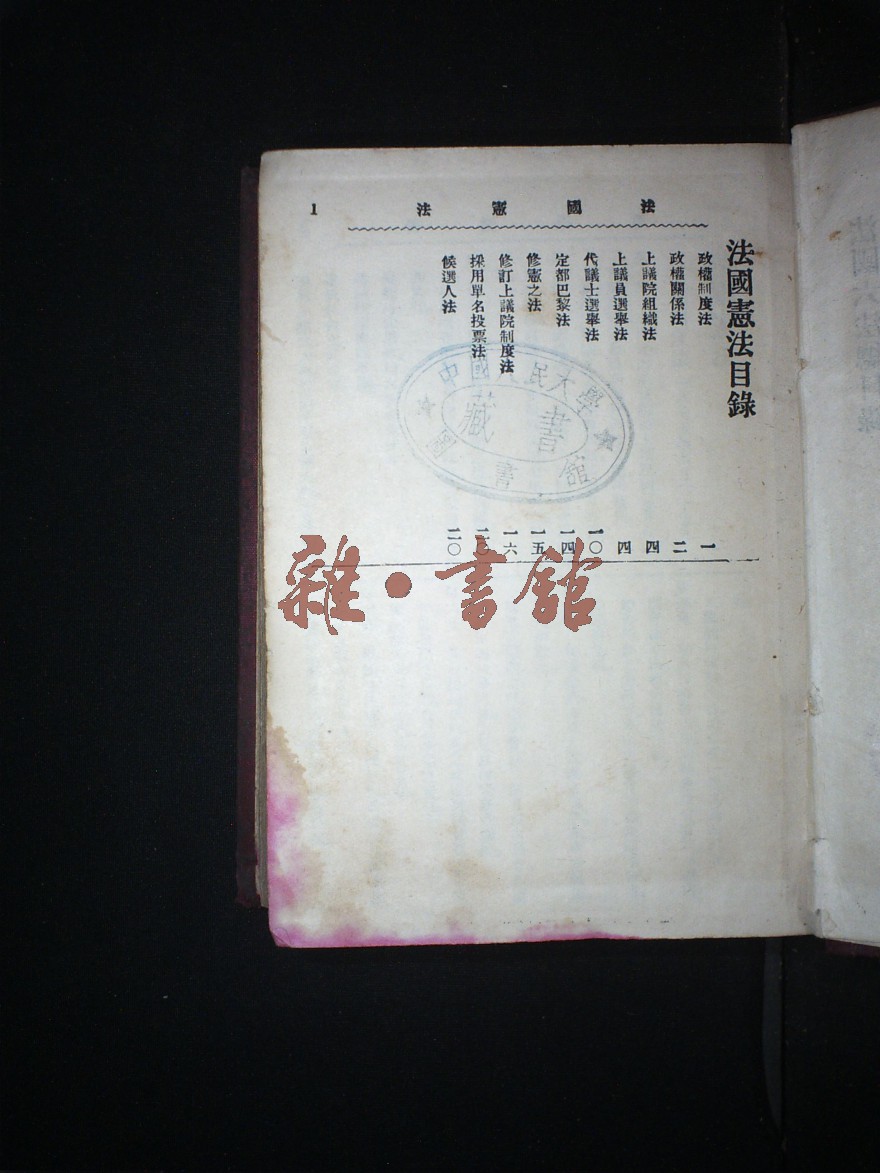 法國憲法
1
法國憲法目錄
政權制度法 一
政權關係法 二
上議院組織法 四
上議員選舉法 四
代議士選舉法 一〇
定都巴黎法 一四
修憲之法 一五
修訂上議院制度法 一六
採用單名投票法
候選人法 二〇
中國人民大學
藏書
圖書館
雜·書館